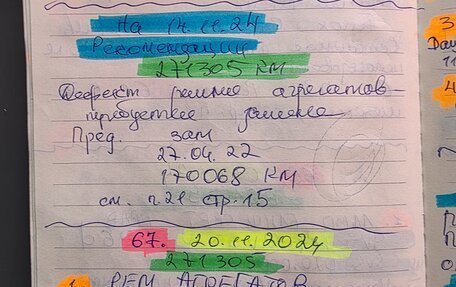 На 14.11.24
Рекомендации
271305 КМ
Дефект ремня агрегатов -
требуется замена
Пред. зам
27.04.22
170068 КМ
см. п.21 стр.15
67. 20.11.2024
271305
1 РЕМ АГРЕГАТОВ
3
Da
11
4